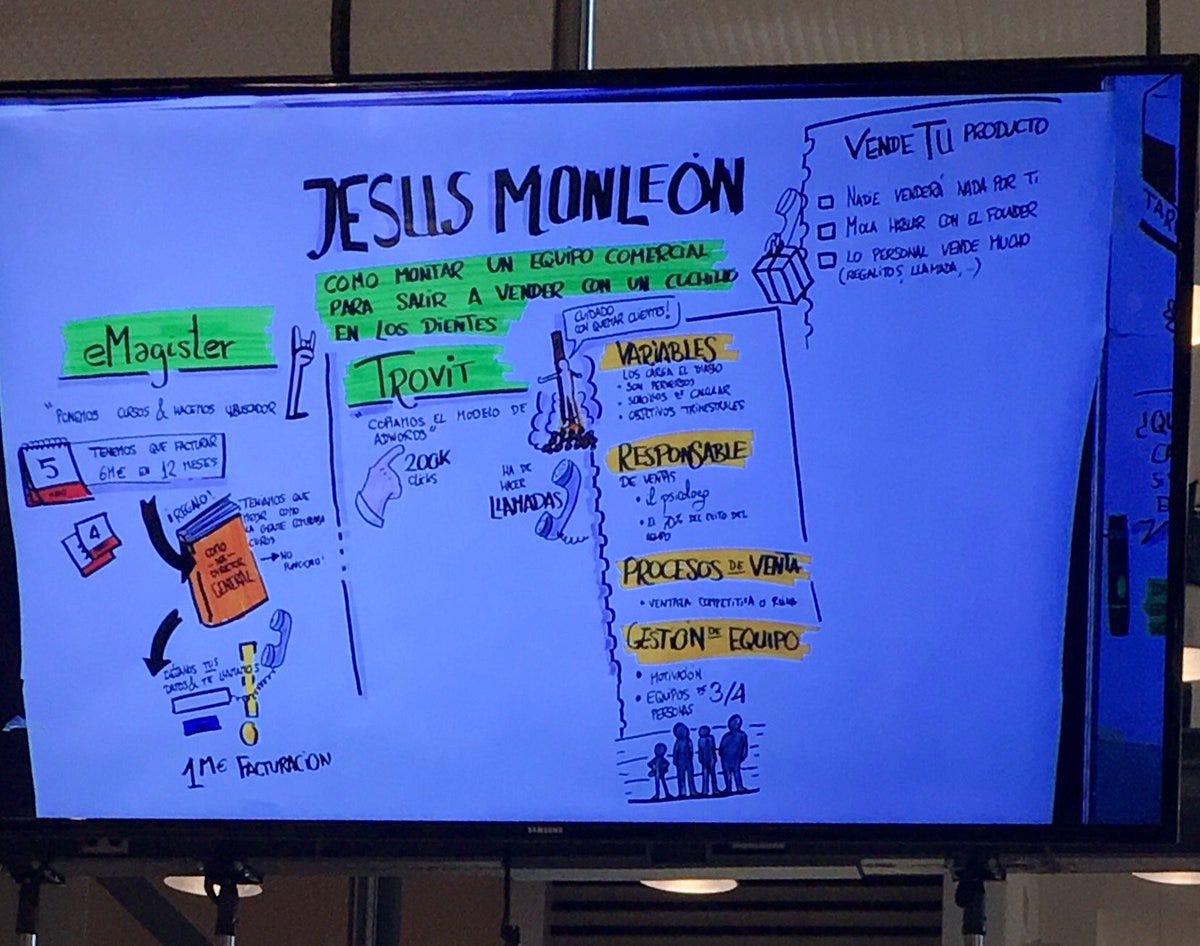 JESUS MONLEÓN
COMO MONTAR UN EQUIPO COMERCIAL
PARA SALIR A VENDER CON UN CUCHILLO
EN LOS DIENTES
eMagister
"PONEMOS CURSOS & HACEMOS
5
TENEMOS QUE FACTURAR
6M€ EN 12 MESES
4
¡REGALO!
TENIAMOS QUE
COMO
LA GENTE
CURSOS
→ NO
FUNCIONO!
COMO
SER
DIRECTOR
GENERAL
DÉJANOS TUS
DATOS & TE LLAMAMOS
1M€ FACTURACIÓN
TROVIT
"COPIAMOS EL MODELO DE
ADWORDS"
200K
CLICKS
HA DE
HACER
LLAMADAS
CUIDADO
CON QUEMAR CLIENTES!
VARIABLES
LOS CARGA EL DIABLO
• SON PERVERSOS
• SENCILLOS DE CALCULAR
• OBJETIVOS TRIMESTRALES
RESPONSABLE
DE VENTAS
• El psicólogo
• El 70% DEL ÉXITO DEL
EQUIPO
PROCESOS DE VENTA
• VENTAJA COMPETITIVA O
GESTIÓN DE EQUIPO
• MOTIVACIÓN
• EQUIPOS DE 3/4
PERSONAS
VENDE TU PRODUCTO
NADIE VENDERÁ NADA POR TI
MOLA HABLAR CON EL FOUNDER
LO PERSONAL VENDE MUCHO
(REGALITOS, LLAMADA, ..)
TAR
¿QU
SAMSUNG